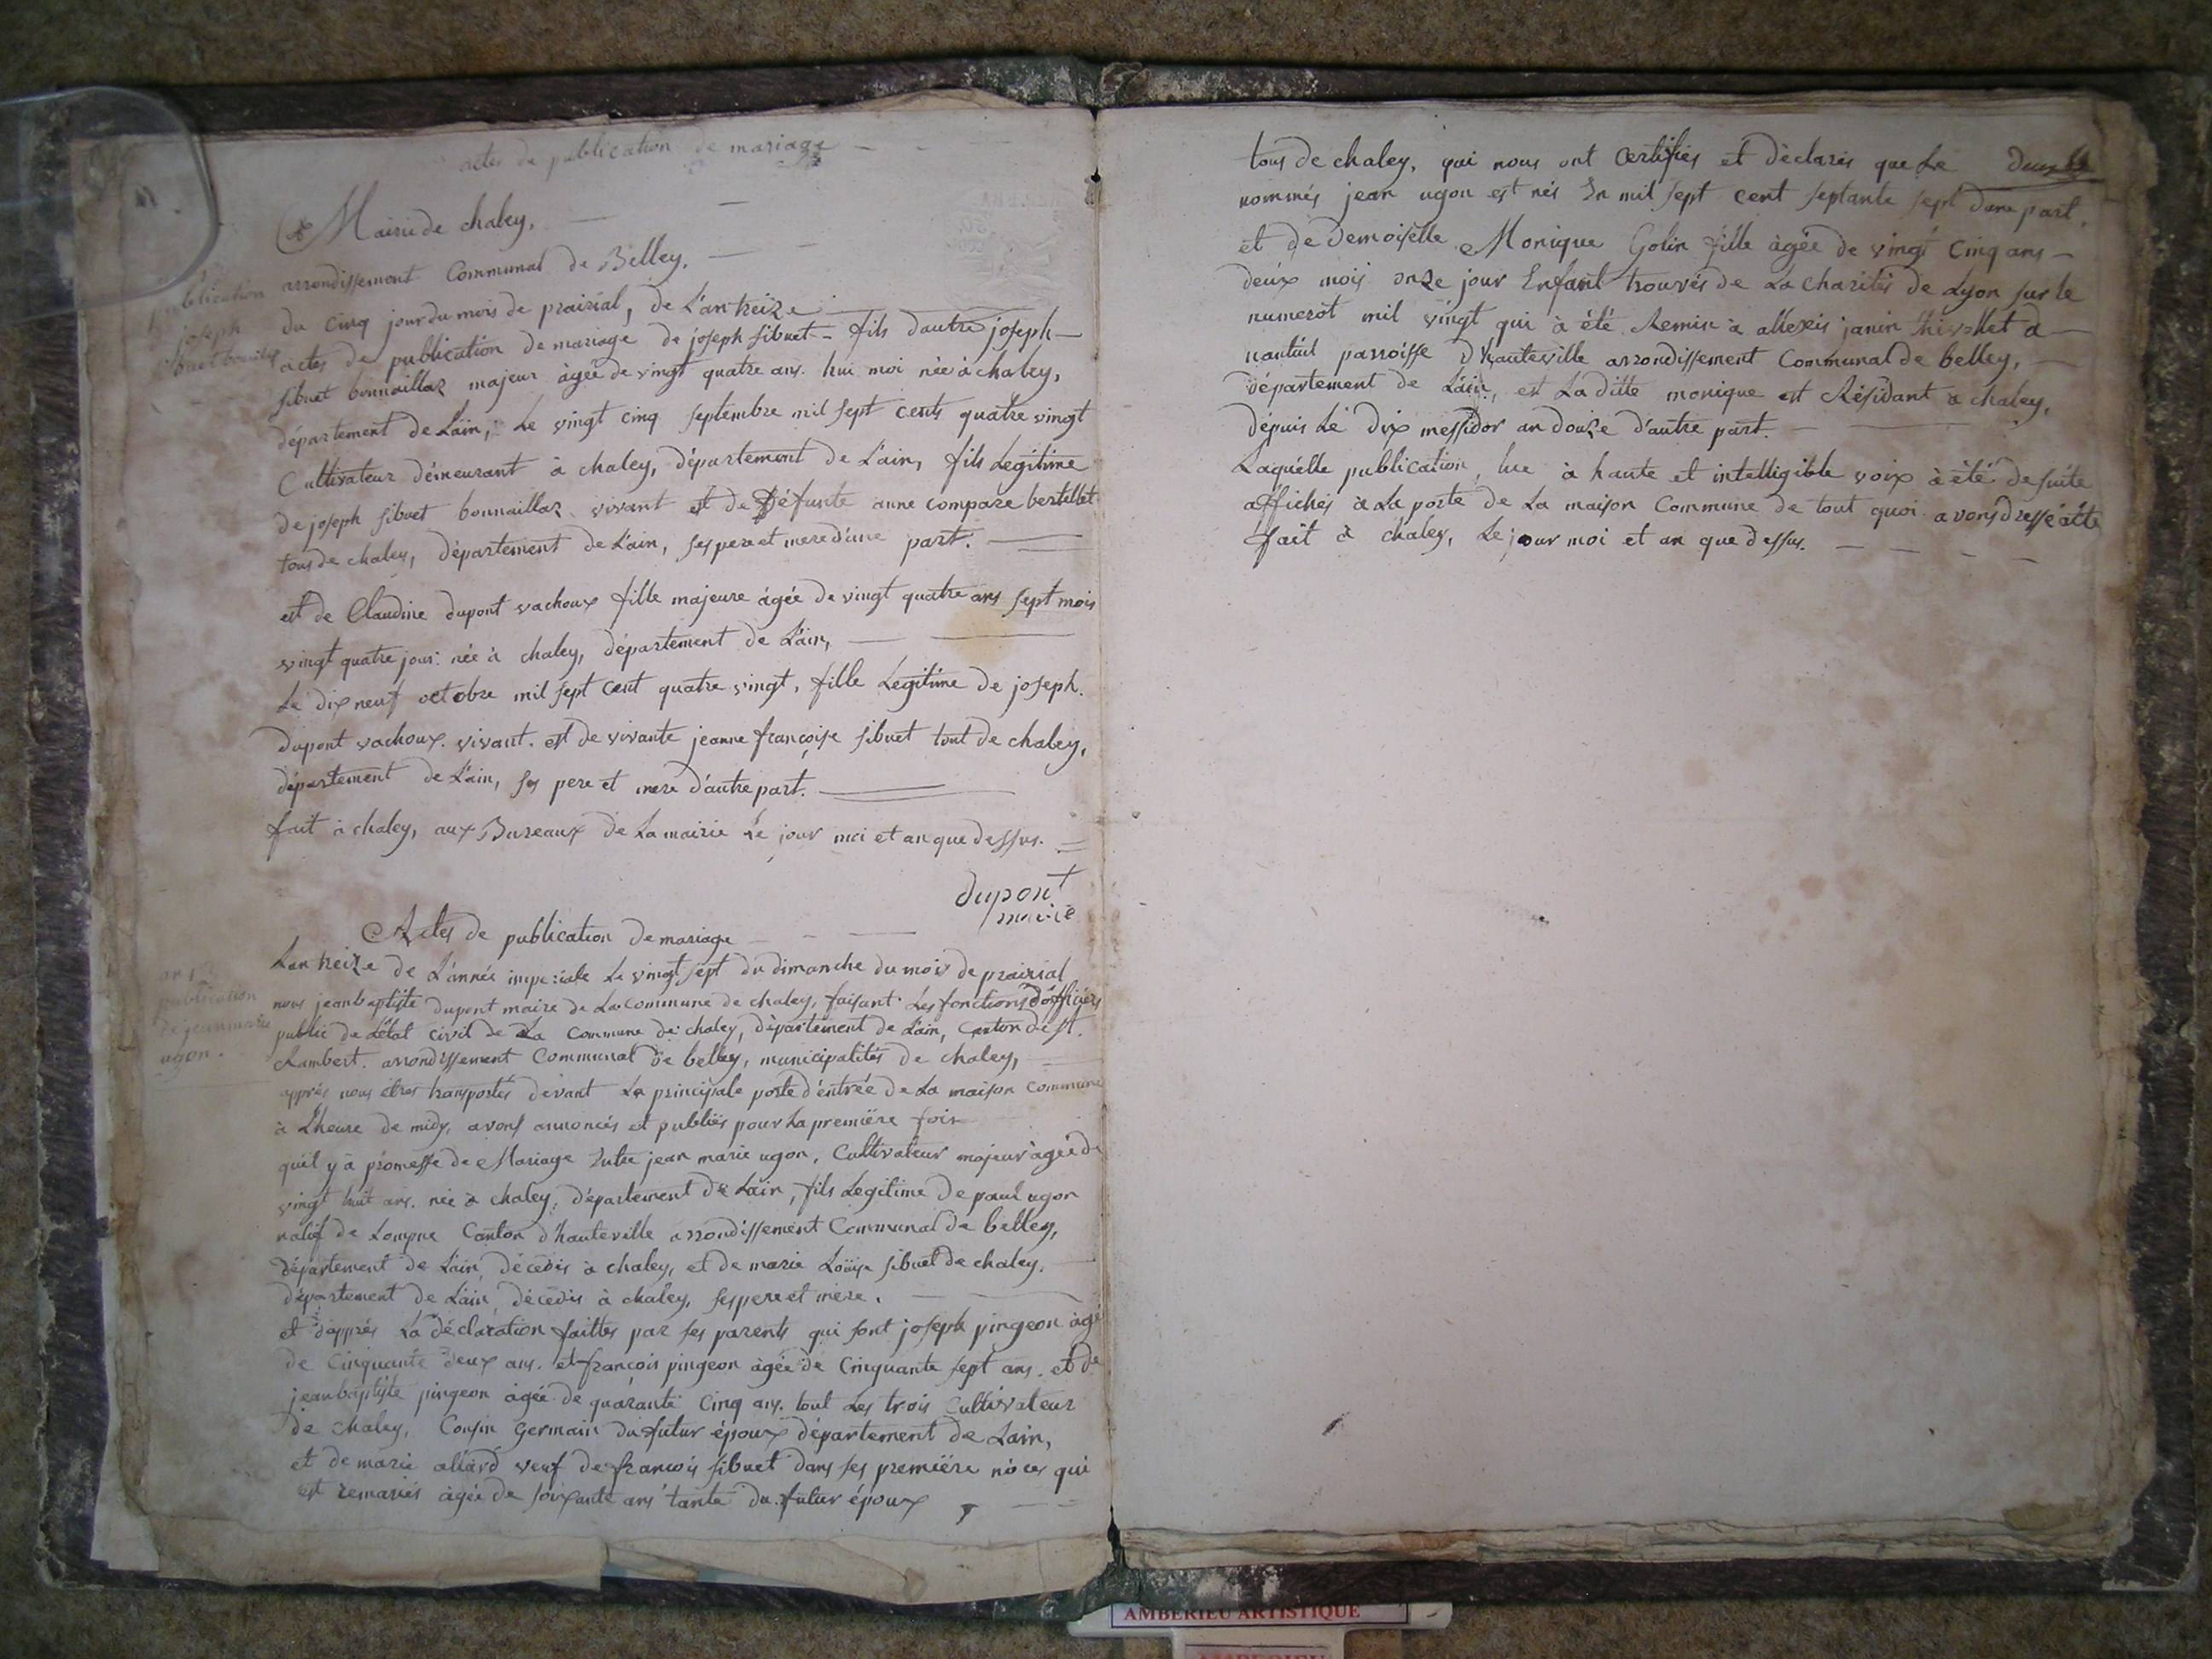 actes de publication de mariage
Mairie de chaley,
arrondissement Communal de Belley,
du cinq jour du mois de prairial, de L'an treize
actes de publication de mariage de joseph sibuet fils dautre joseph
sibuet bonnaillaz majeur àgée de vingt quatre ans. hui moi née à chaley,
département de L'ain, Le vingt cinq septembre mil sept cents quatre vingt
Cultivateur démeurant à chaley, département de L'ain, fils Legitime
de joseph sibuet bonnaillaz vivant et de Défunte anne compare bertillet
tous de chaley, département de L'ain, ses pere et mere d'une part.
publication
joseph
sibuet
est de Claudine dupont vachoux fille majeure àgée de vingt quatre ans sept mois
vingt quatre jour: née à chaley, département de L'ain,
Le dix neuf octobre mil sept cent quatre vingt, fille Legitime de joseph.
dupont vachoux. vivant. est de vivante jeanne françoise sibuet tout de chaley,
département de L'ain, ses pere et mere d'autre part.
fait à chaley, aux Bureaux de La mairie Le jour moi et an que dessus.
dupont
maire
Actes de publication de mariage
Lan treize de L'année imperiale Le vingt sept du dimanche du mois de prairial
nous jeanbaptiste dupont maire de La commune de chaley, faisant Les fonctions d'officiers
public de L'état civil de La commune de chaley, département de L'ain, canton de st.
Rambert. arrondissement Communal de belley, municipalités de chaley,
apprés nous êtres transportés devant La principale porte d'éntrée de La maison commune
à L'heure de midy, avons annoncés et publiés pour La premiëre fois
publication
de jean marie
ugon.
quil y à promesse de Mariage Entre jean marie ugon, Cultivateur majeur àgée de
vingt huit ans. née à chaley, département de L'ain, fils Legitime de paul ugon
natif de Lompne Canton d'hauteville arrondissement Communal de belley,
département de L'ain, décédés à chaley, et de marie Loüise sibuet de chaley,
département de L'ain, décédés à chaley, ses pere et mere.
et d'apprés La déclaration faittes par ses parents qui sont joseph pingeon àgé
de cinquante deux ans. et françois pingeon àgée de Cinquante sept ans. et de
jeanbaptiste pingeon àgée de quarante cinq ans. tout Les trois Cultivateur
de chaley, Cousin Germain du futur époux département de L'ain,
et de marie allard veuf de françois sibuet dans ses premiëre nòces qui
est remariés àgée de soixante ans tante du futur époux
tous de chaley, qui nous ont certifiés et déclarés que Le
nommés jean ugon est nés En mil sept cent septante sept dune part,
et de Demoiselle Monique Golin fille àgée de vingt cinq ans
deux mois onze jour Enfant trouvés de La charités de Lyon sur le
numerót mil vingt qui à été Remis à allexis janin à
nantuil parroisse d'hauteville arrondissement Communal de belley,
département de L'ain, est La ditte monique est Résidant à chaley,
dépuis Le dix messidor an douze d'autre part.
Laquélle publication, lue à haute et intelligible voix à été de suite
affichés à La porte de La maison Commune de tout quoi avons dressé acte
fait à chaley, Le jour moi et an que dessus.
AMBERIEU ARTISTIQUE
AMBERIEU